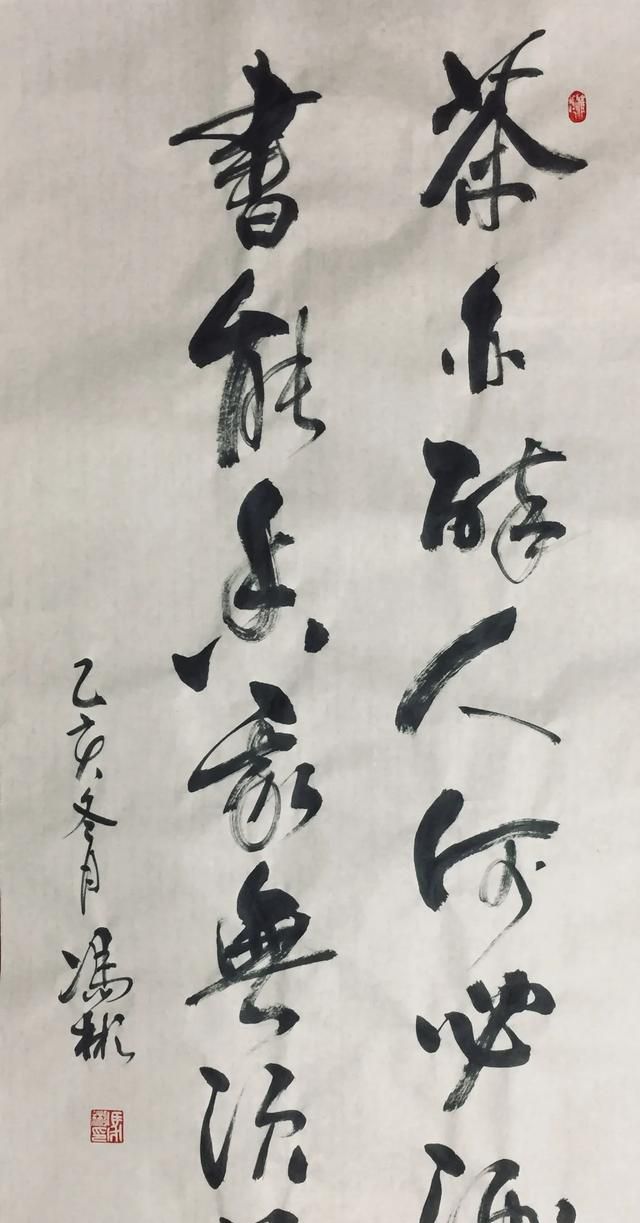 茶亦醉人何必酒
書能香我無須
乙亥冬月 馮彬